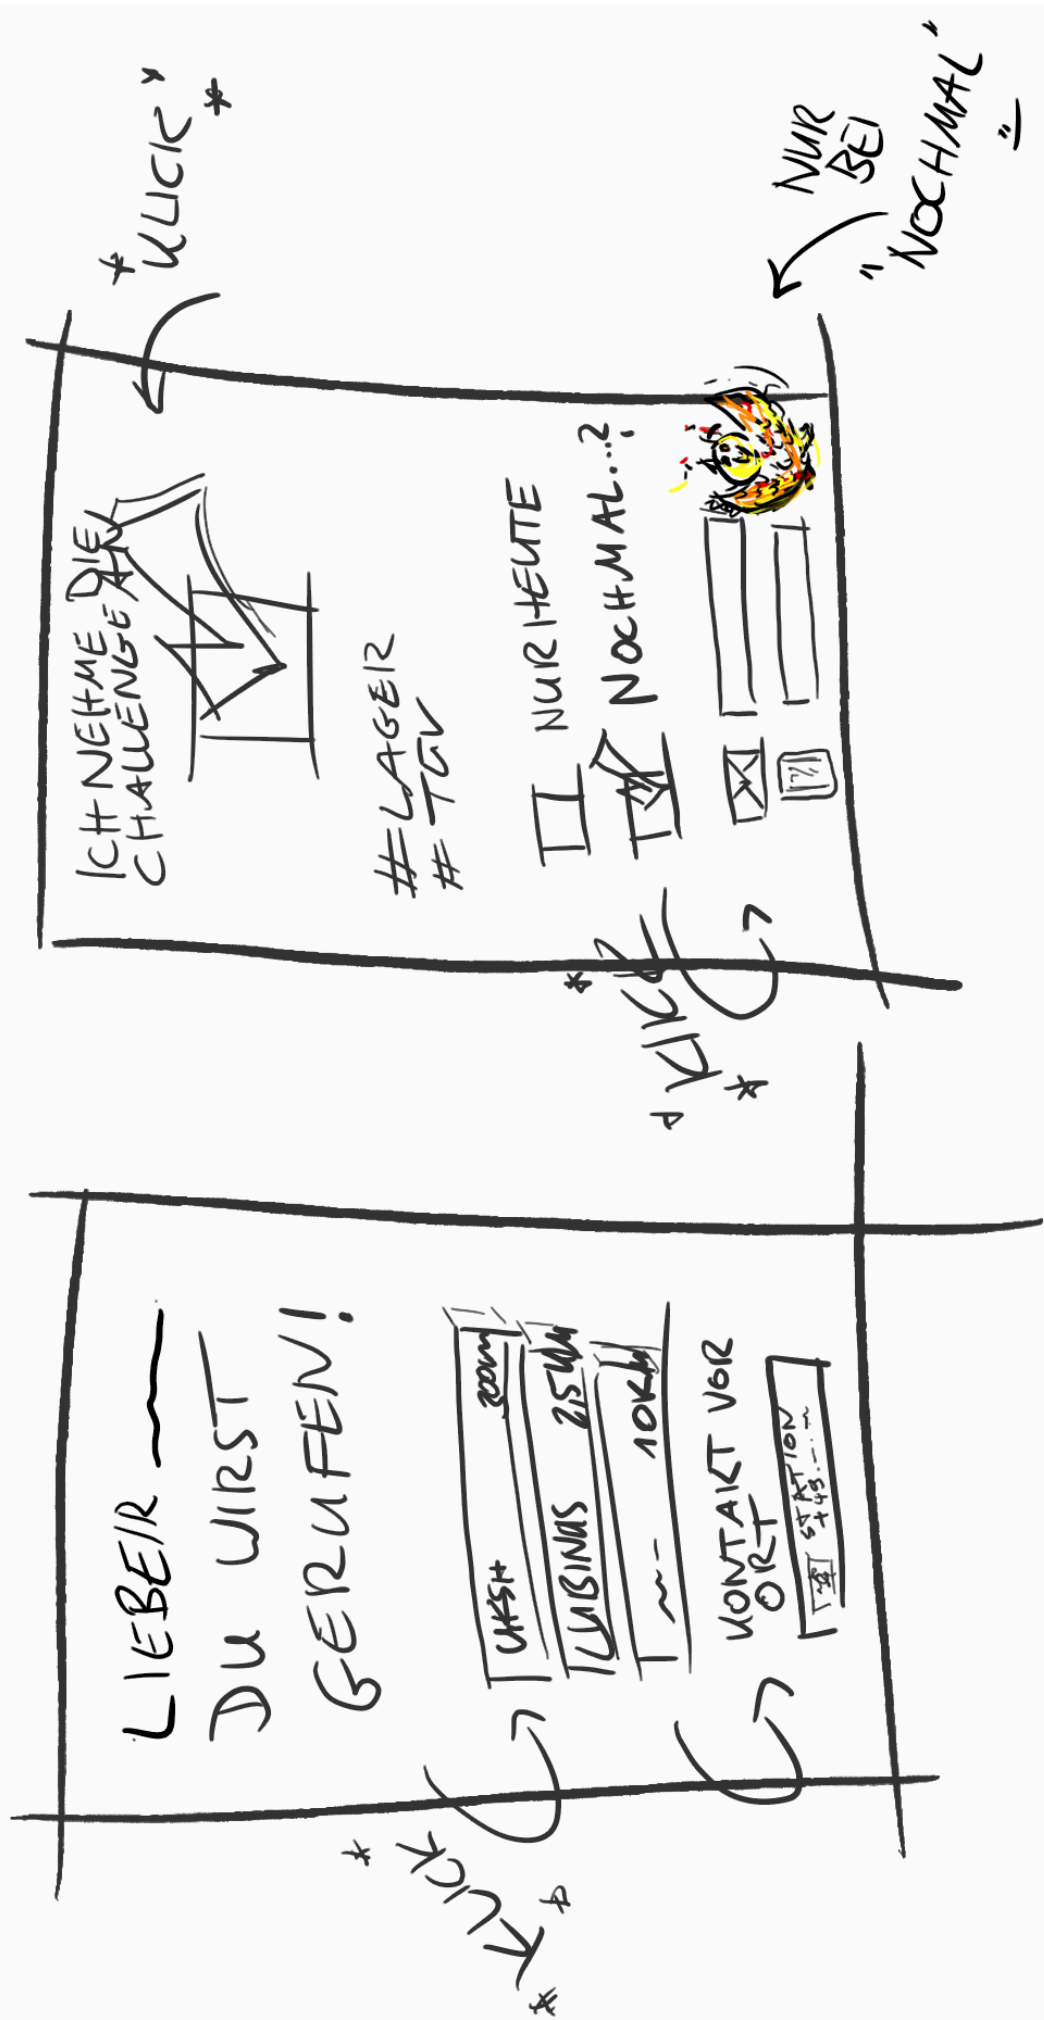 LIEBE/R
DU WIRST
GERUFEN!
UKSH 300m
LUBINUS 2,5 KM
10KM
KONTAKT VOR
ORT
STATION
+49
*KLICK*
ICH NEHME DIE
CHALLENGE AN
#LAGER
#TGV
NUR HEUTE
NOCHMAL...?
*KLICK*
"KLICK"
NUR
BEI
"NOCHMAL"